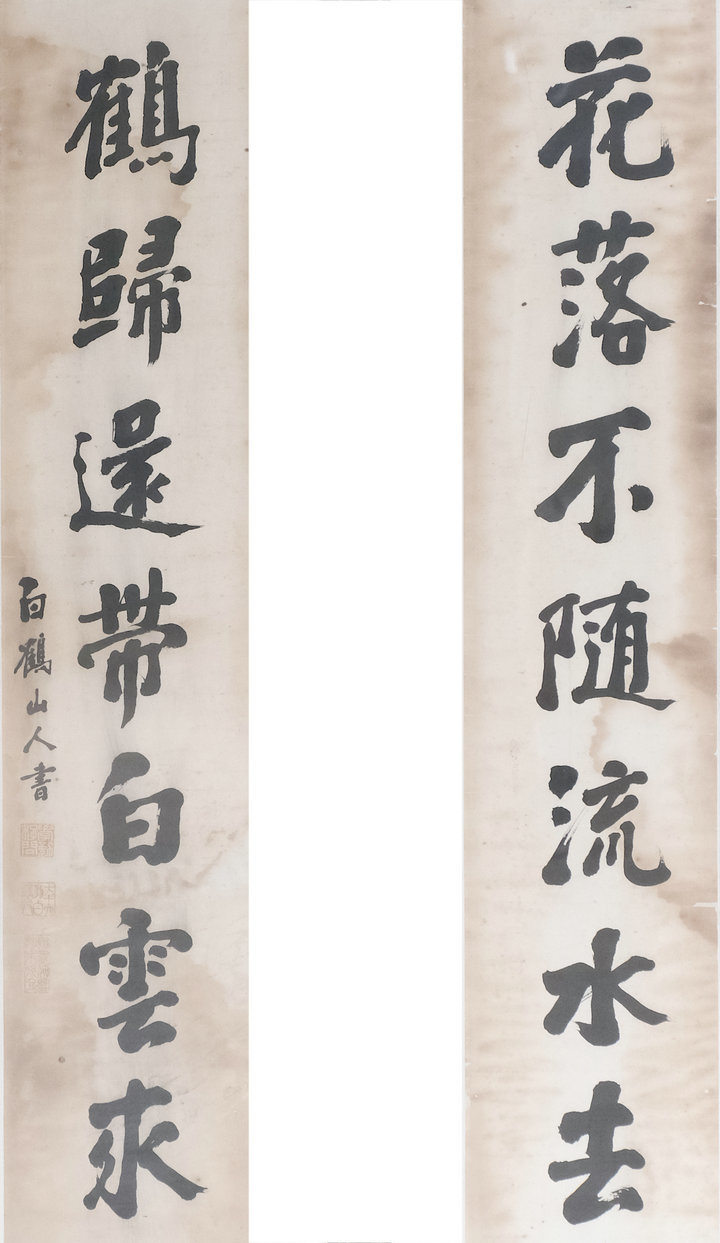 花落不随流水去
鶴歸還帶白雲來
白鶴山人書